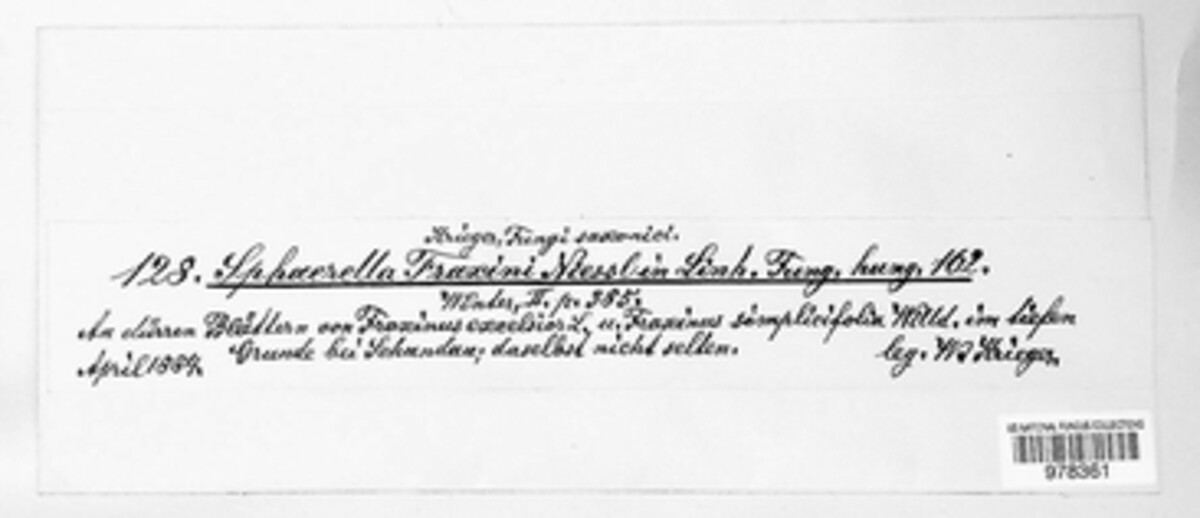 Krieger, Fungi saxonici.
128. Sphaerella Fraxini Niessl in Linh. Fung. hung. 162.
Winter, II. p. 385.
An dürren Blättern von Fraxinus excelsior L. u. Fraxinus simplicifolia Willd. im tiefen
Grunde bei Schandau; daselbst nicht selten.
April 1884.
leg. W. Krieger.
US NATIONAL FUNGUS COLLECTIONS
978351